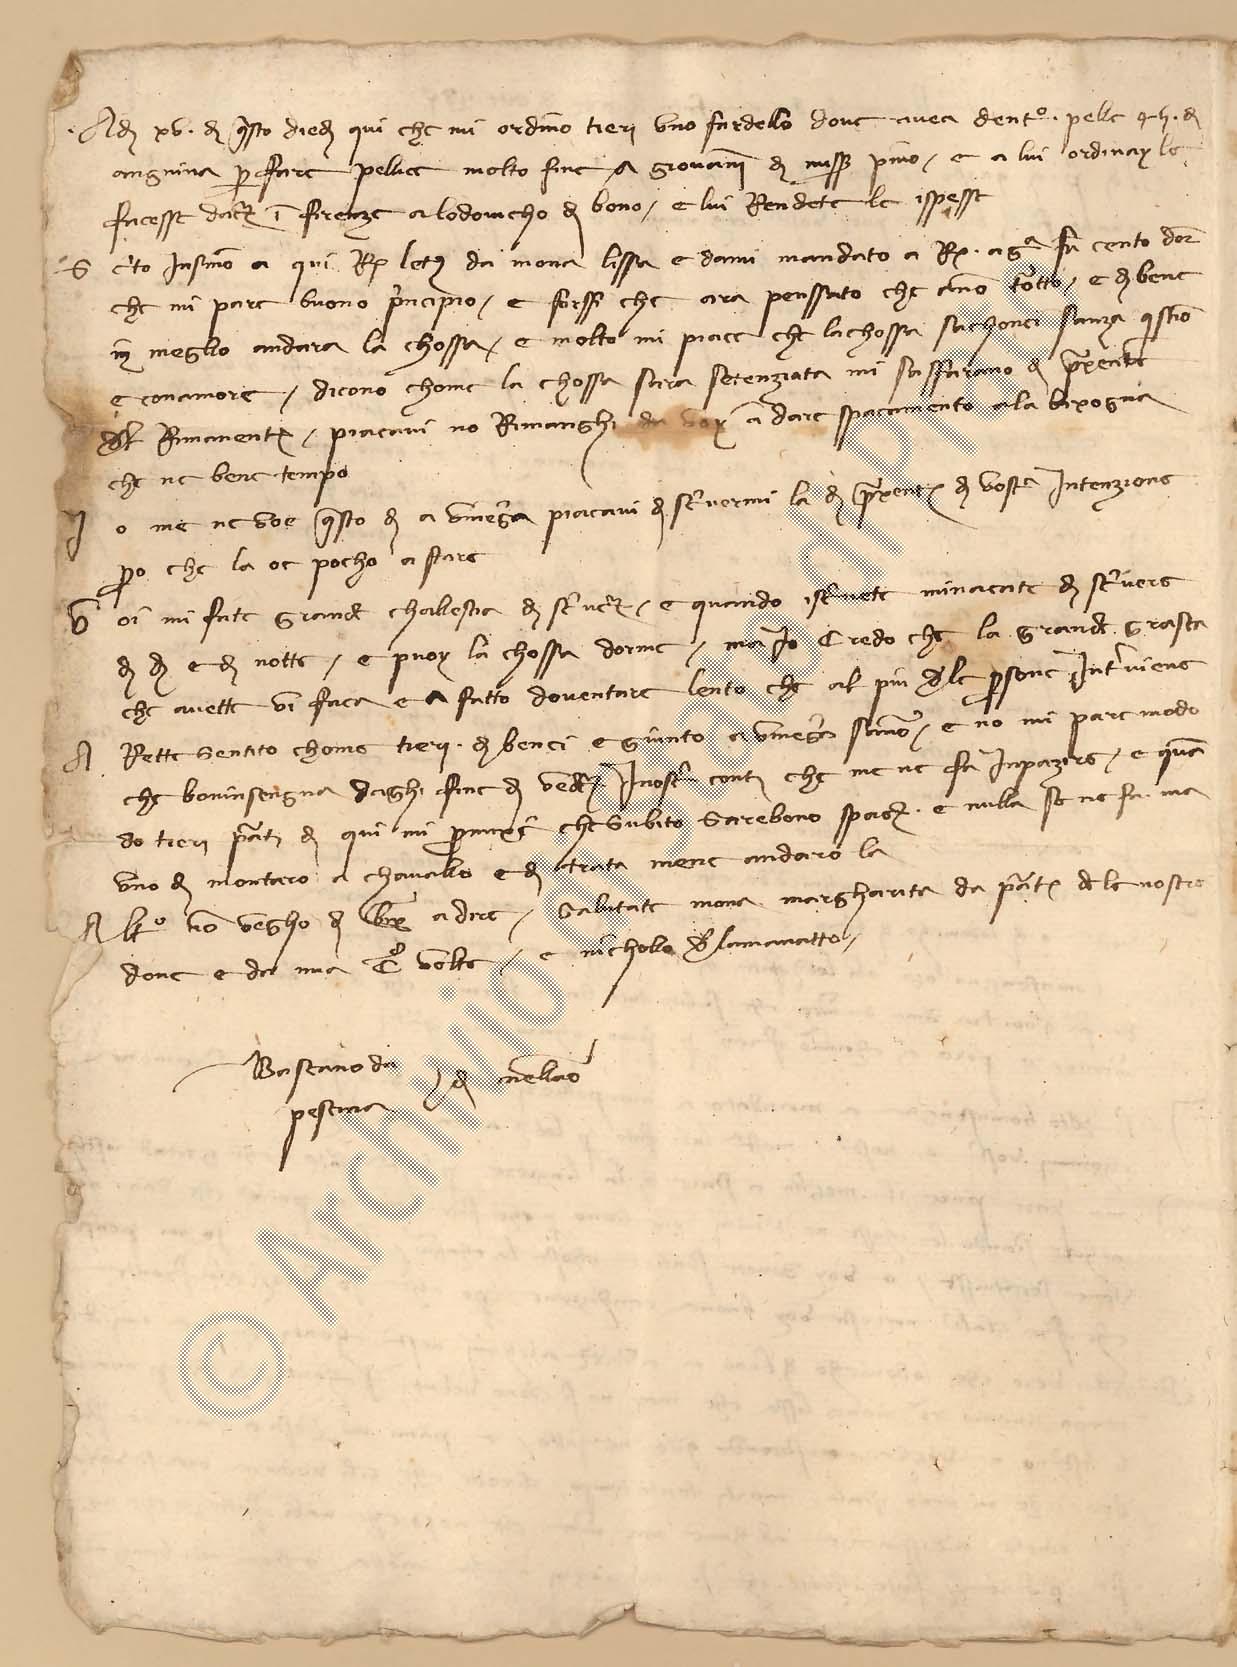 Ad xv. d q̄sto died qui che mi ordino tieri uno fardello dove avea dent°. pelle 45. d
angnina p fare pellice molto fine a giovanī d miss p̄mo / e a lui ordinay le
facesse dare ī firenze a lodovicho d bono / e lui Rendete le ispesse
S c̄to Insino a qui Rx let da mona lissa e davi mandato a Rx. ag.a fn cento dor
che mi pare buono p̄ncipio / e forssi che ara penssato che ano tutto / e d bene
in meglio andara la chossa / e molto mi piace che la chossa sachonci sanza q̄stio
e conamore / dicono chome la chossa sara setenziata mi sassarano d p̄xente
del Rimanente / piacavi no Rimangh da voy a dare spacamento a la bixogna
che ne bene tempo
I o me ne voe q̄sto d a vinegia piacavi d sc̄vermi la d p̄xente d vost̄a Intenzione
p̄o che la oe pocho a stare
V oi mi fate grande challestia d sc̄vere / e quando isc̄vete minacate d sc̄vere
d d e d notte / e puoy la chossa dorme / ma Io Credo che la grande grasca
che avette vi faca e a fatto doventare lento che al piu dle p̄sone Int̄viene
A Rette sentito chome tieri. d benci e giunto a vinegia sano / e no mi pare modo
che boninsengna daghi fine d vedere. I nost̄i conti che me ne fa Inpazire / e quan
do tieri p̄ati d qui mi p̄misse che subito sarebono spaciati. e nulla se ne fa. ma
uno d montaro a chavallo e d trata mene andaro la
A lt° no vegho d bix a dire / salutate mona margharita da p̄te dele nostre
done e da mia C° volte / e nichollo dlamanatto /
Bascano da
pescina d in mellāo